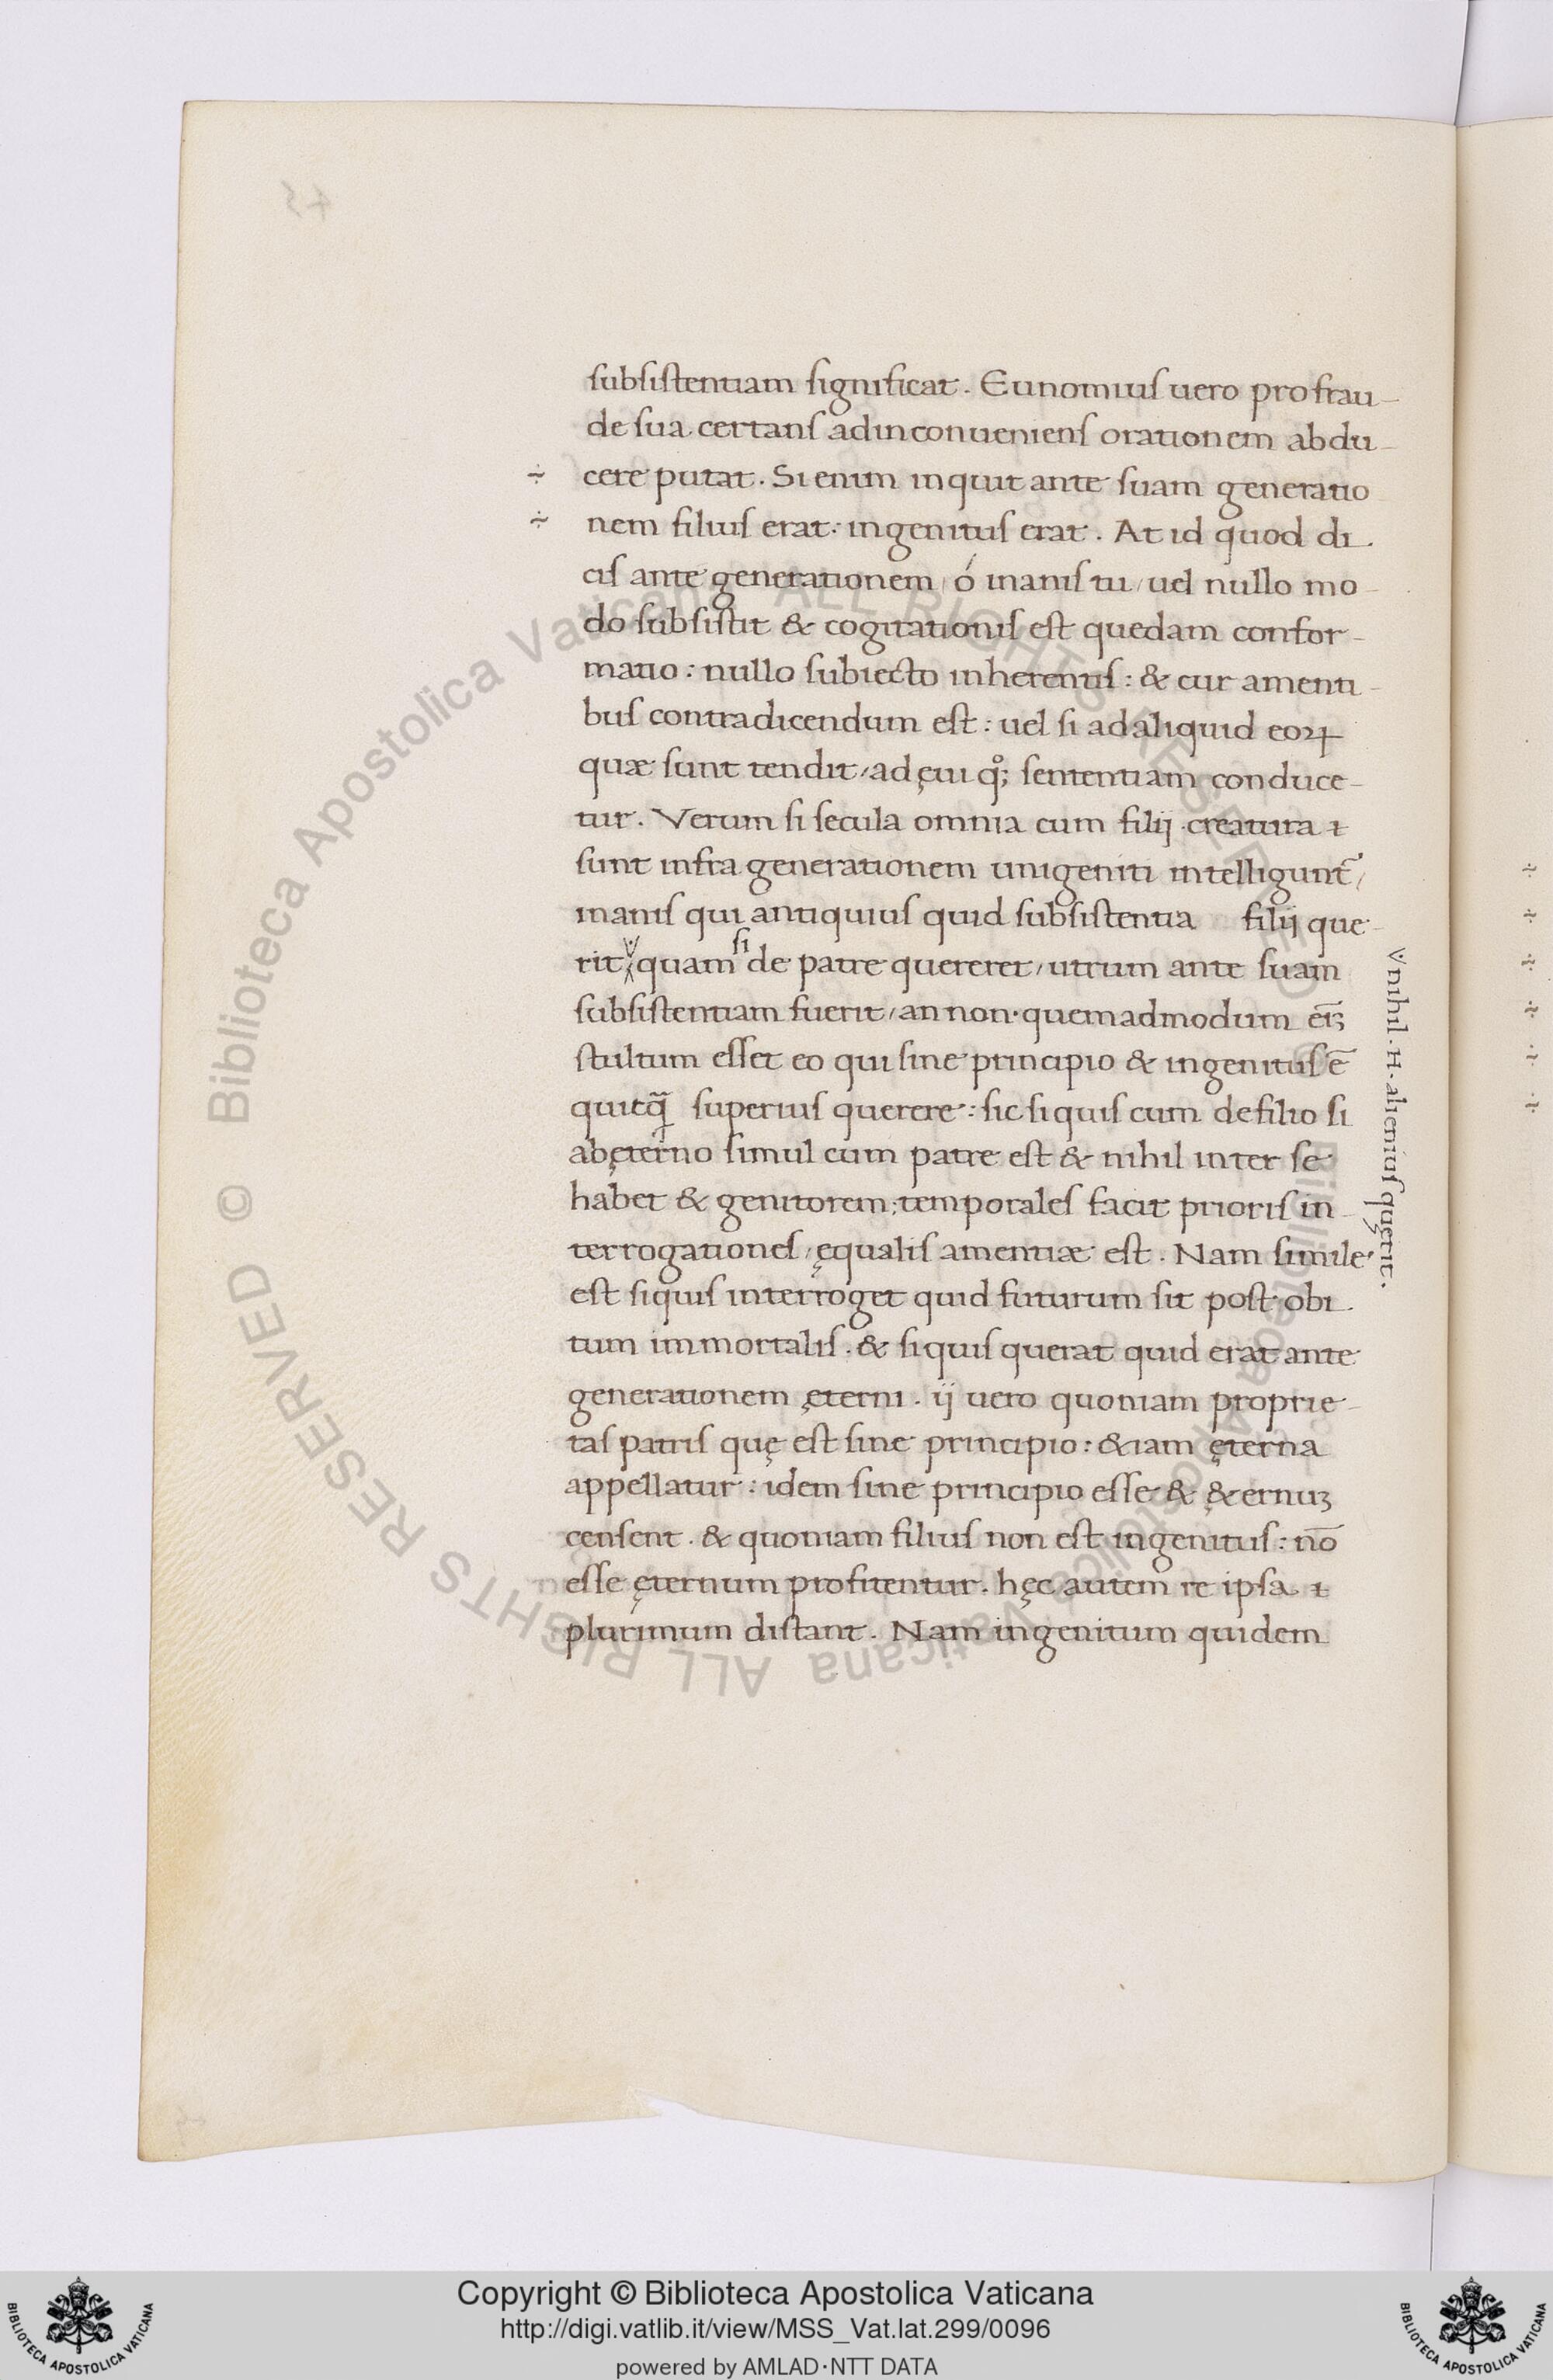 subsistentiam significat. Eunomius uero pro frau-
de sua certans ad inconueniens orationem abdu-
÷ cere putat. Si enim inquit ante suam generatio
÷ nem filius erat: ingenitus erat. At id quod di-
cis ante generationem / ó inanis tu / uel nullo mo-
do subsistit & cogitationis est quedam confor-
matio: nullo subiecto inherentis: & cur amenti-
bus contradicendum est: uel si ad aliquid eoꝝ
quæ sunt tendit / ad ęui qͦ; sententiam conduce-
tur. Verum si secula omnia cum filij creatura ⁊
sunt infra generationem unigeniti intelligunt᷑ /
inanis qui antiquius quid subsistentia filij que-
rit quam si de patre quereret / utrum ante suam
subsistentiam fuerit / an non. quemadmodum eı̄ꝫ
stultum esset eo qui sine principio & ingenitus ē
quicꝗ̄ superius querere: sic siquis cum de filio si
ab ęterno simul cum patre est & nihil inter se
habet & genitorem; temporales facit prioris in-
terrogationes / ęqualis amentiæ est. Nam simile
est siquis interroget quid futurum sit post obi-
tum immortalis. & siquis querat quid erat ante
generationem ęterni. ij uero quoniam proprie-
tas patris quę est sine principio: &iam ęterna
appellatur: idem sine principio esse & ę&ernuꝫ
censent. & quoniam filius non est ingenitus: nō
esse ęternum profitentur. hęc autem re ipsa ⁊
plurimum distant. Nam ingenitum quidem
nihil. H. alienius quęrit.
45
Copyright © Biblioteca Apostolica Vaticana
http://digi.vatlib.it/view/MSS_Vat.lat.299/0096
powered by AMLAD·NTT DATA
BIBLIOTECA APOSTOLICA VATICANA
BIBLIOTECA APOSTOLICA VATICANA
© Biblioteca Apostolica Vaticana ALL RIGHTS RESERVED
© Biblioteca Apostolica Vaticana ALL RIGHTS RESERVED